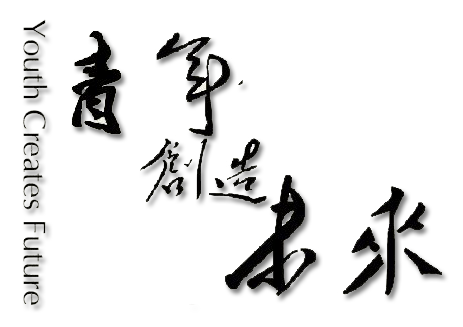 Youth Creates Future
青年
創造
未來